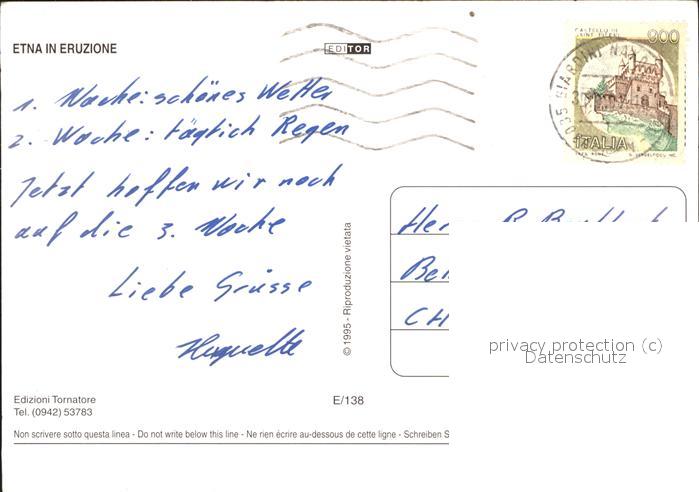 ETNA IN ERUZIONE
EDITOR
CASTELLO DI
900
ITALIA
GIARDINI NAXOS
1. Woche: schönes Wetter
2. Woche: täglich Regen
Jetzt hoffen wir noch
auf die 3. Woche
Liebe Grüsse
Huguette
© 1995 - Riproduzione vietata
Her
Be
CH
privacy protection (c)
Datenschutz
Edizioni Tornatore
Tel. (0942) 53783
E/138
Non scrivere sotto questa linea - Do not write below this line - Ne rien écrire au-dessous de cette ligne - Schreiben S